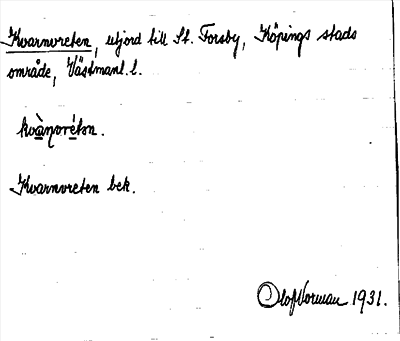 Kvarnvreten, utjord till St. Forsby, Köpings stads
område, Västmanl. l.
kvàn̥vréton.
Kvarnvreten bek.
Olof Norman 1931.